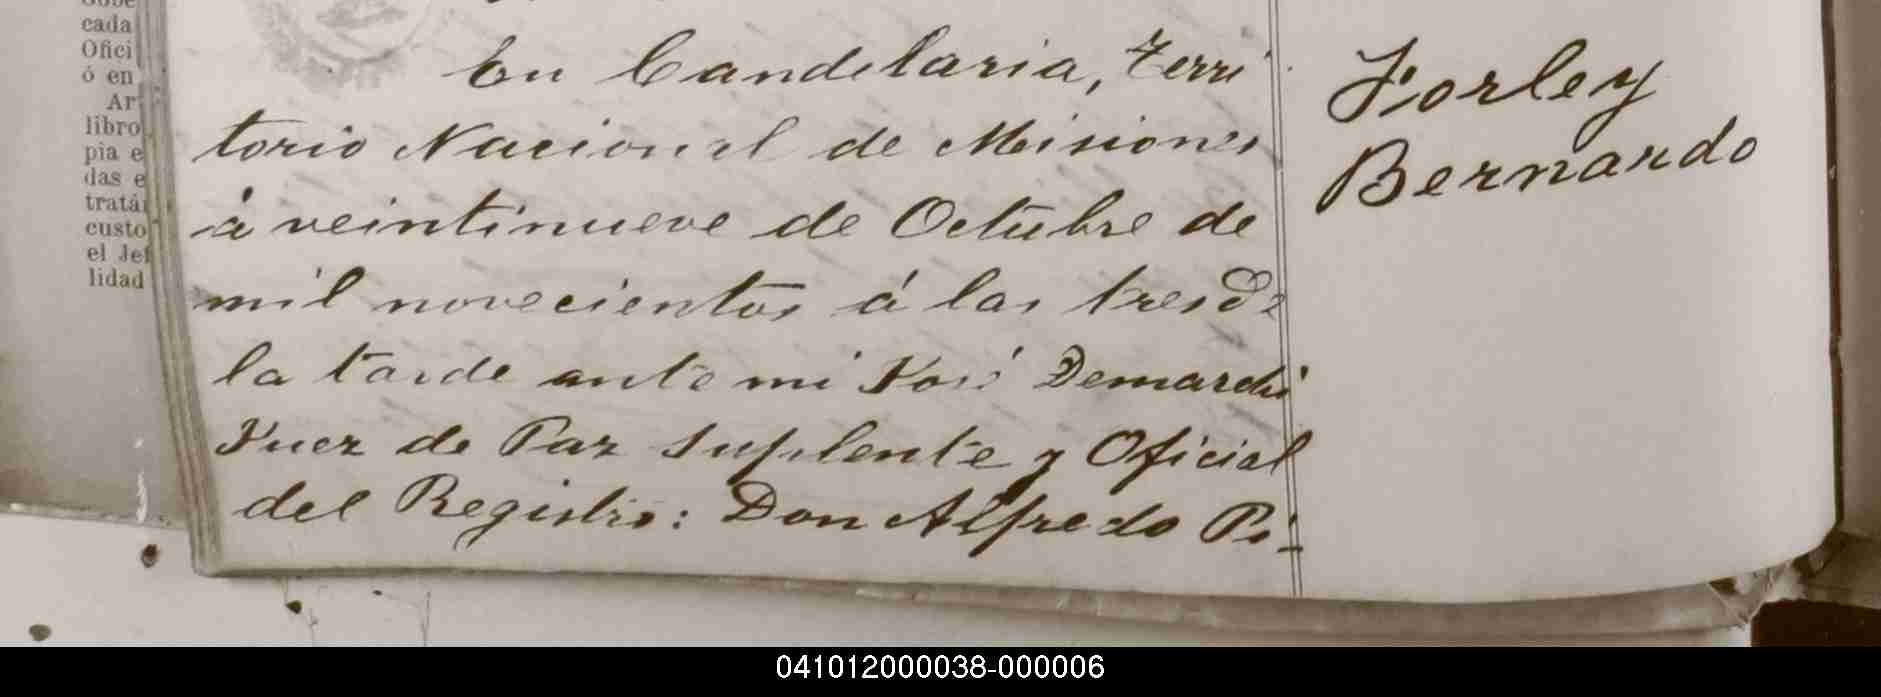 cada
Ofici
ó en
Ar
libro
pia e
das e
tratá
custo
el Jef
lidad
En Candelaria, Terri
torio Nacional de Misiones
á veintinueve de Octubre de
mil novecientos á las tres de
la tarde ante mi José Demarchi
Juez de Paz Suplente y Oficial
del Registro: Don Alfredo Pi-
Forley
Bernardo
041012000038-000006